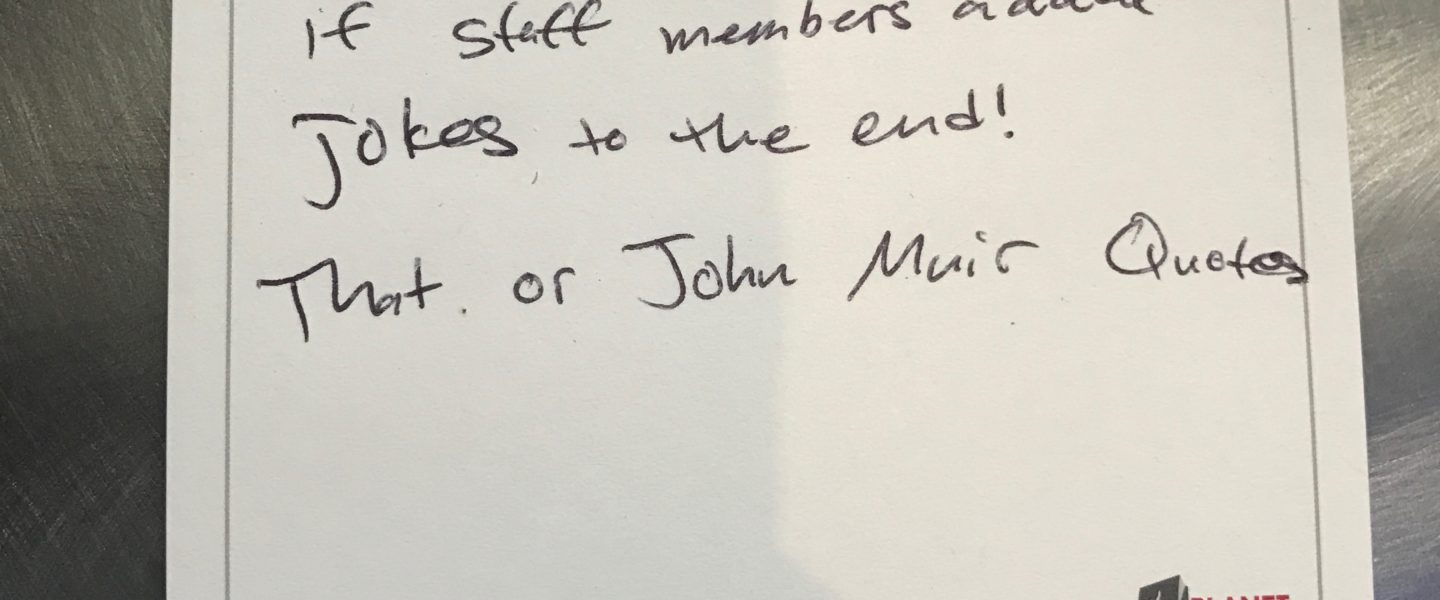 if staff members added
Jokes to the end!
That. or John Muir Quotes
PLANET